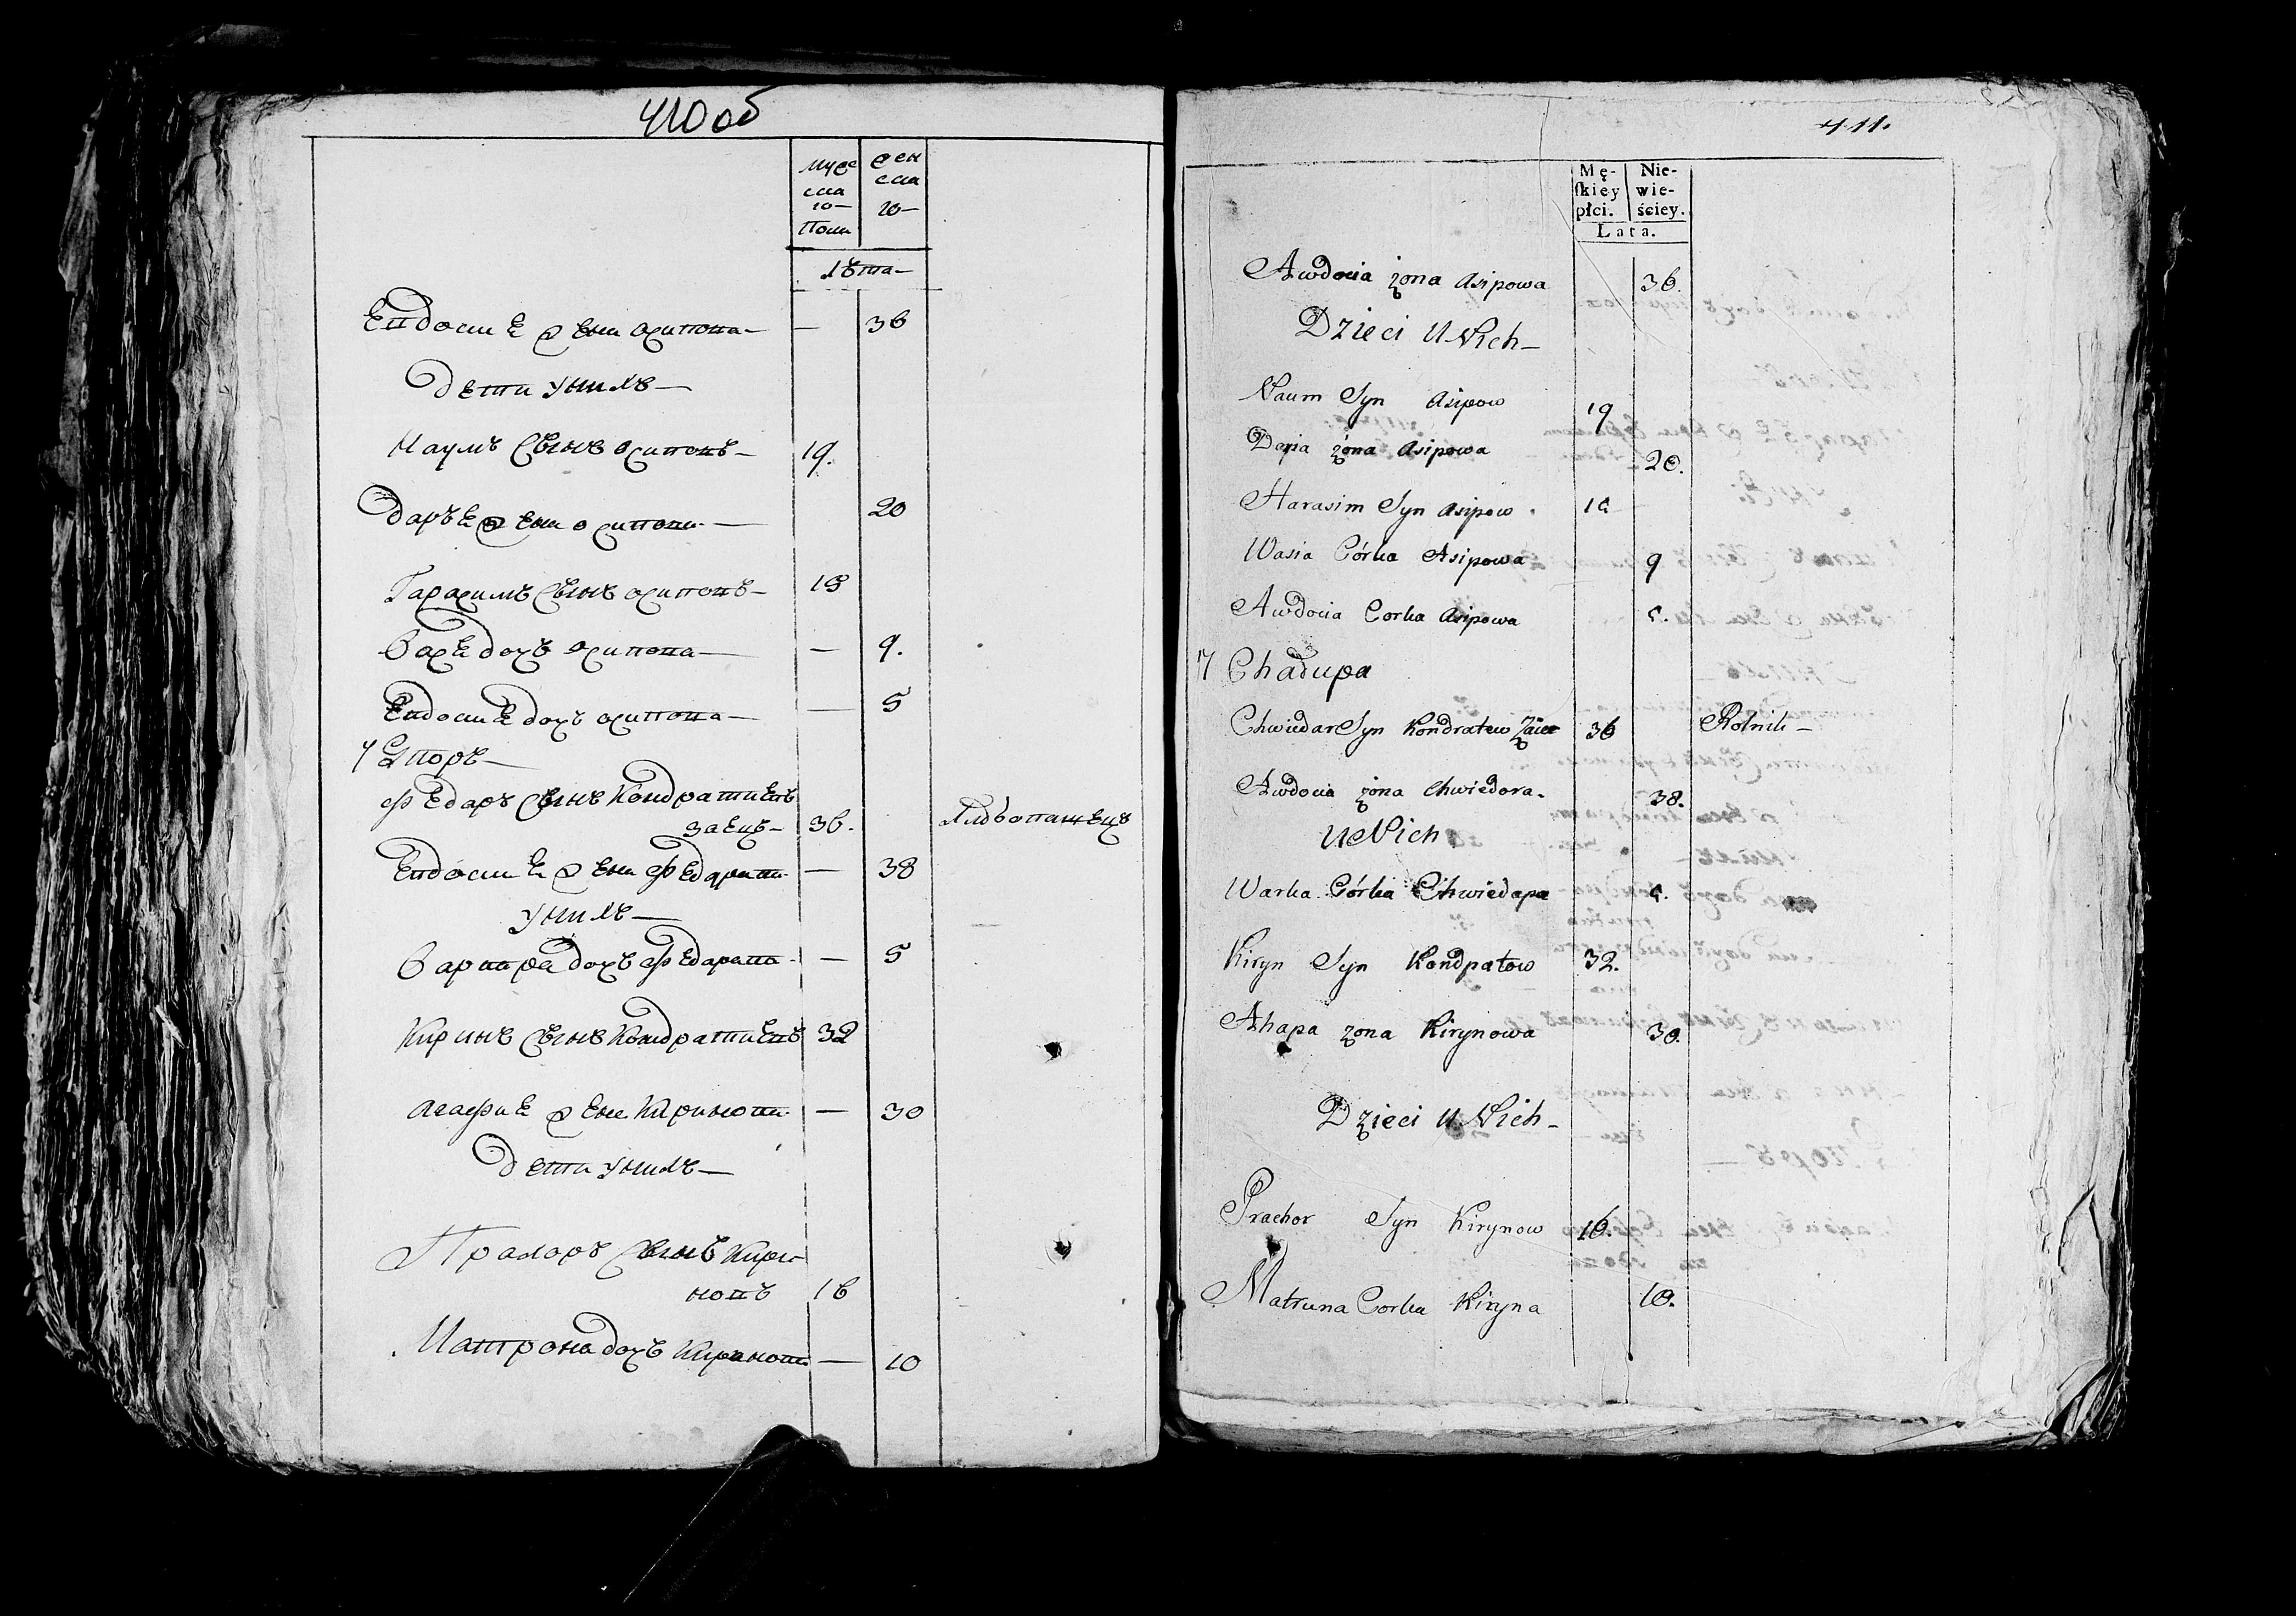 410 об
Муже
ска
го
Полу
Жен
ска
го
Лѣта
Евдосиѣ жена осипова — 36
Дети у них
Наумъ сынъ осиповъ 19.
Дарья жена осипова 20
Гарасимъ сынъ осиповъ 15
Вася дочь осипова — 9.
Евдосия дочь осипова — 5
7 Двор
Федаръ сынъ Кондратиевъ
Заецъ 36. Хлѣбопашецъ
Евдосия жена Федарава — 38
у них
Варвара дочь Федарава — 5
Киринъ сынъ Кондратиевъ 32
Агафия жена Киринова — 30
Дети у них
Прахоръ сынъ Кири
новъ 16
Матрона дочь Киринова — 10
411.
Mę-
skiey
płci.
Nie-
wie-
ściey.
Lata.
Awdocia żona Asipowa 36.
Dzieci U Nich
Naum Syn Asipow 19
Darja żona Asipowa 20.
Harasim Syn Asipow 15
Wasia Córka Asipowa 9
Awdocia Corka Asipowa 5.
7 Chałupa
Chwiedar Syn Kondratew Zaiec 36 Rolnik
Awdocia żona Chwiedora 38.
U Nich
Warka Córka Chwiedara 5.
Kiryn Syn Kondratow 32.
Ahapa żona Kirynowa 30.
Dzieci U Nich
Prachor Syn Kirynow 16.
Matruna Corka Kiryna 10.